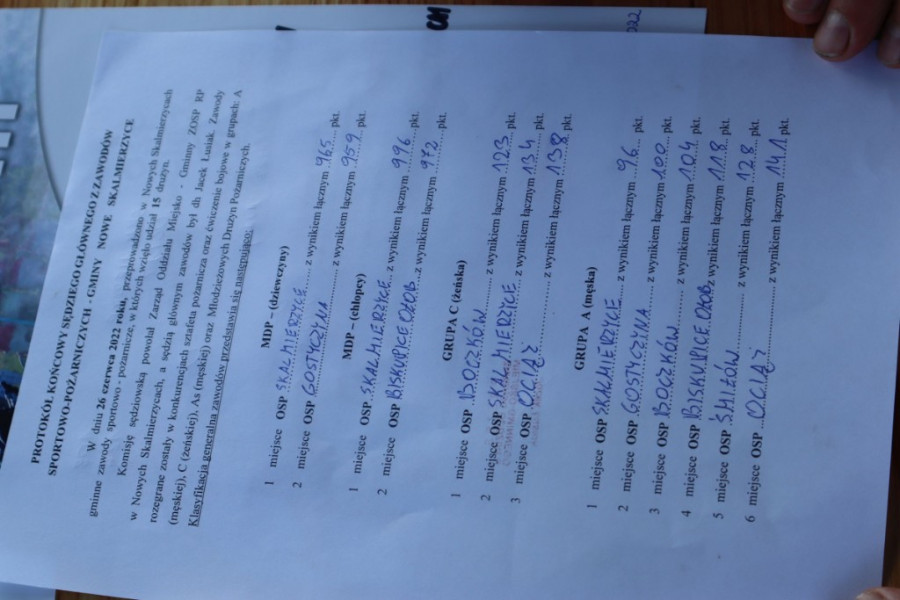 PROTOKÓŁ KOŃCOWY SĘDZIEGO GŁÓWNEGO Z ZAWODÓW
SPORTOWO-POŻARNICZYCH - GMINY NOWE SKALMIERZYCE
W dniu 26 czerwca 2022 roku, przeprowadzono w Nowych Skalmierzycach
gminne zawody sportowo - pożarnicze, w których wzięło udział 15 drużyn.
Komisję sędziowską powołał Zarząd Oddziału Miejsko - Gminny ZOSP RP
w Nowych Skalmierzycach, a sędzią głównym zawodów był dh Jacek Łusiak. Zawody
rozegrane zostały w konkurencjach sztafeta pożarnicza oraz ćwiczenie bojowe w grupach: A
(męskiej), C (żeńskiej), As (męskiej) oraz Młodzieżowych Drużyn Pożarniczych.
Klasyfikacja generalna zawodów przedstawia się następująco:
MDP – (dziewczyny)
1 miejsce OSP SKALMIERZYCE z wynikiem łącznym 965 pkt.
2 miejsce OSP GOSTYCZYNA z wynikiem łącznym 959 pkt.
MDP – (chłopcy)
1 miejsce OSP SKALMIERZYCE z wynikiem łącznym 996 pkt.
2 miejsce OSP BISKUPICE OŁOB. z wynikiem łącznym 972 pkt.
GRUPA C (żeńska)
1 miejsce OSP BOCZKÓW z wynikiem łącznym 123 pkt.
2 miejsce OSP SKALMIERZYCE z wynikiem łącznym 134 pkt.
3 miejsce OSP OCIĄŻ z wynikiem łącznym 138 pkt.
GRUPA A (męska)
1 miejsce OSP SKALMIERZYCE z wynikiem łącznym 96 pkt.
2 miejsce OSP GOSTYCZYNA z wynikiem łącznym 100 pkt.
3 miejsce OSP BOCZKÓW z wynikiem łącznym 104 pkt.
4 miejsce OSP BISKUPICE OŁOB. z wynikiem łącznym 118 pkt.
5 miejsce OSP ŚLIWÓW z wynikiem łącznym 128 pkt.
6 miejsce OSP OCIĄŻ z wynikiem łącznym 141 pkt.